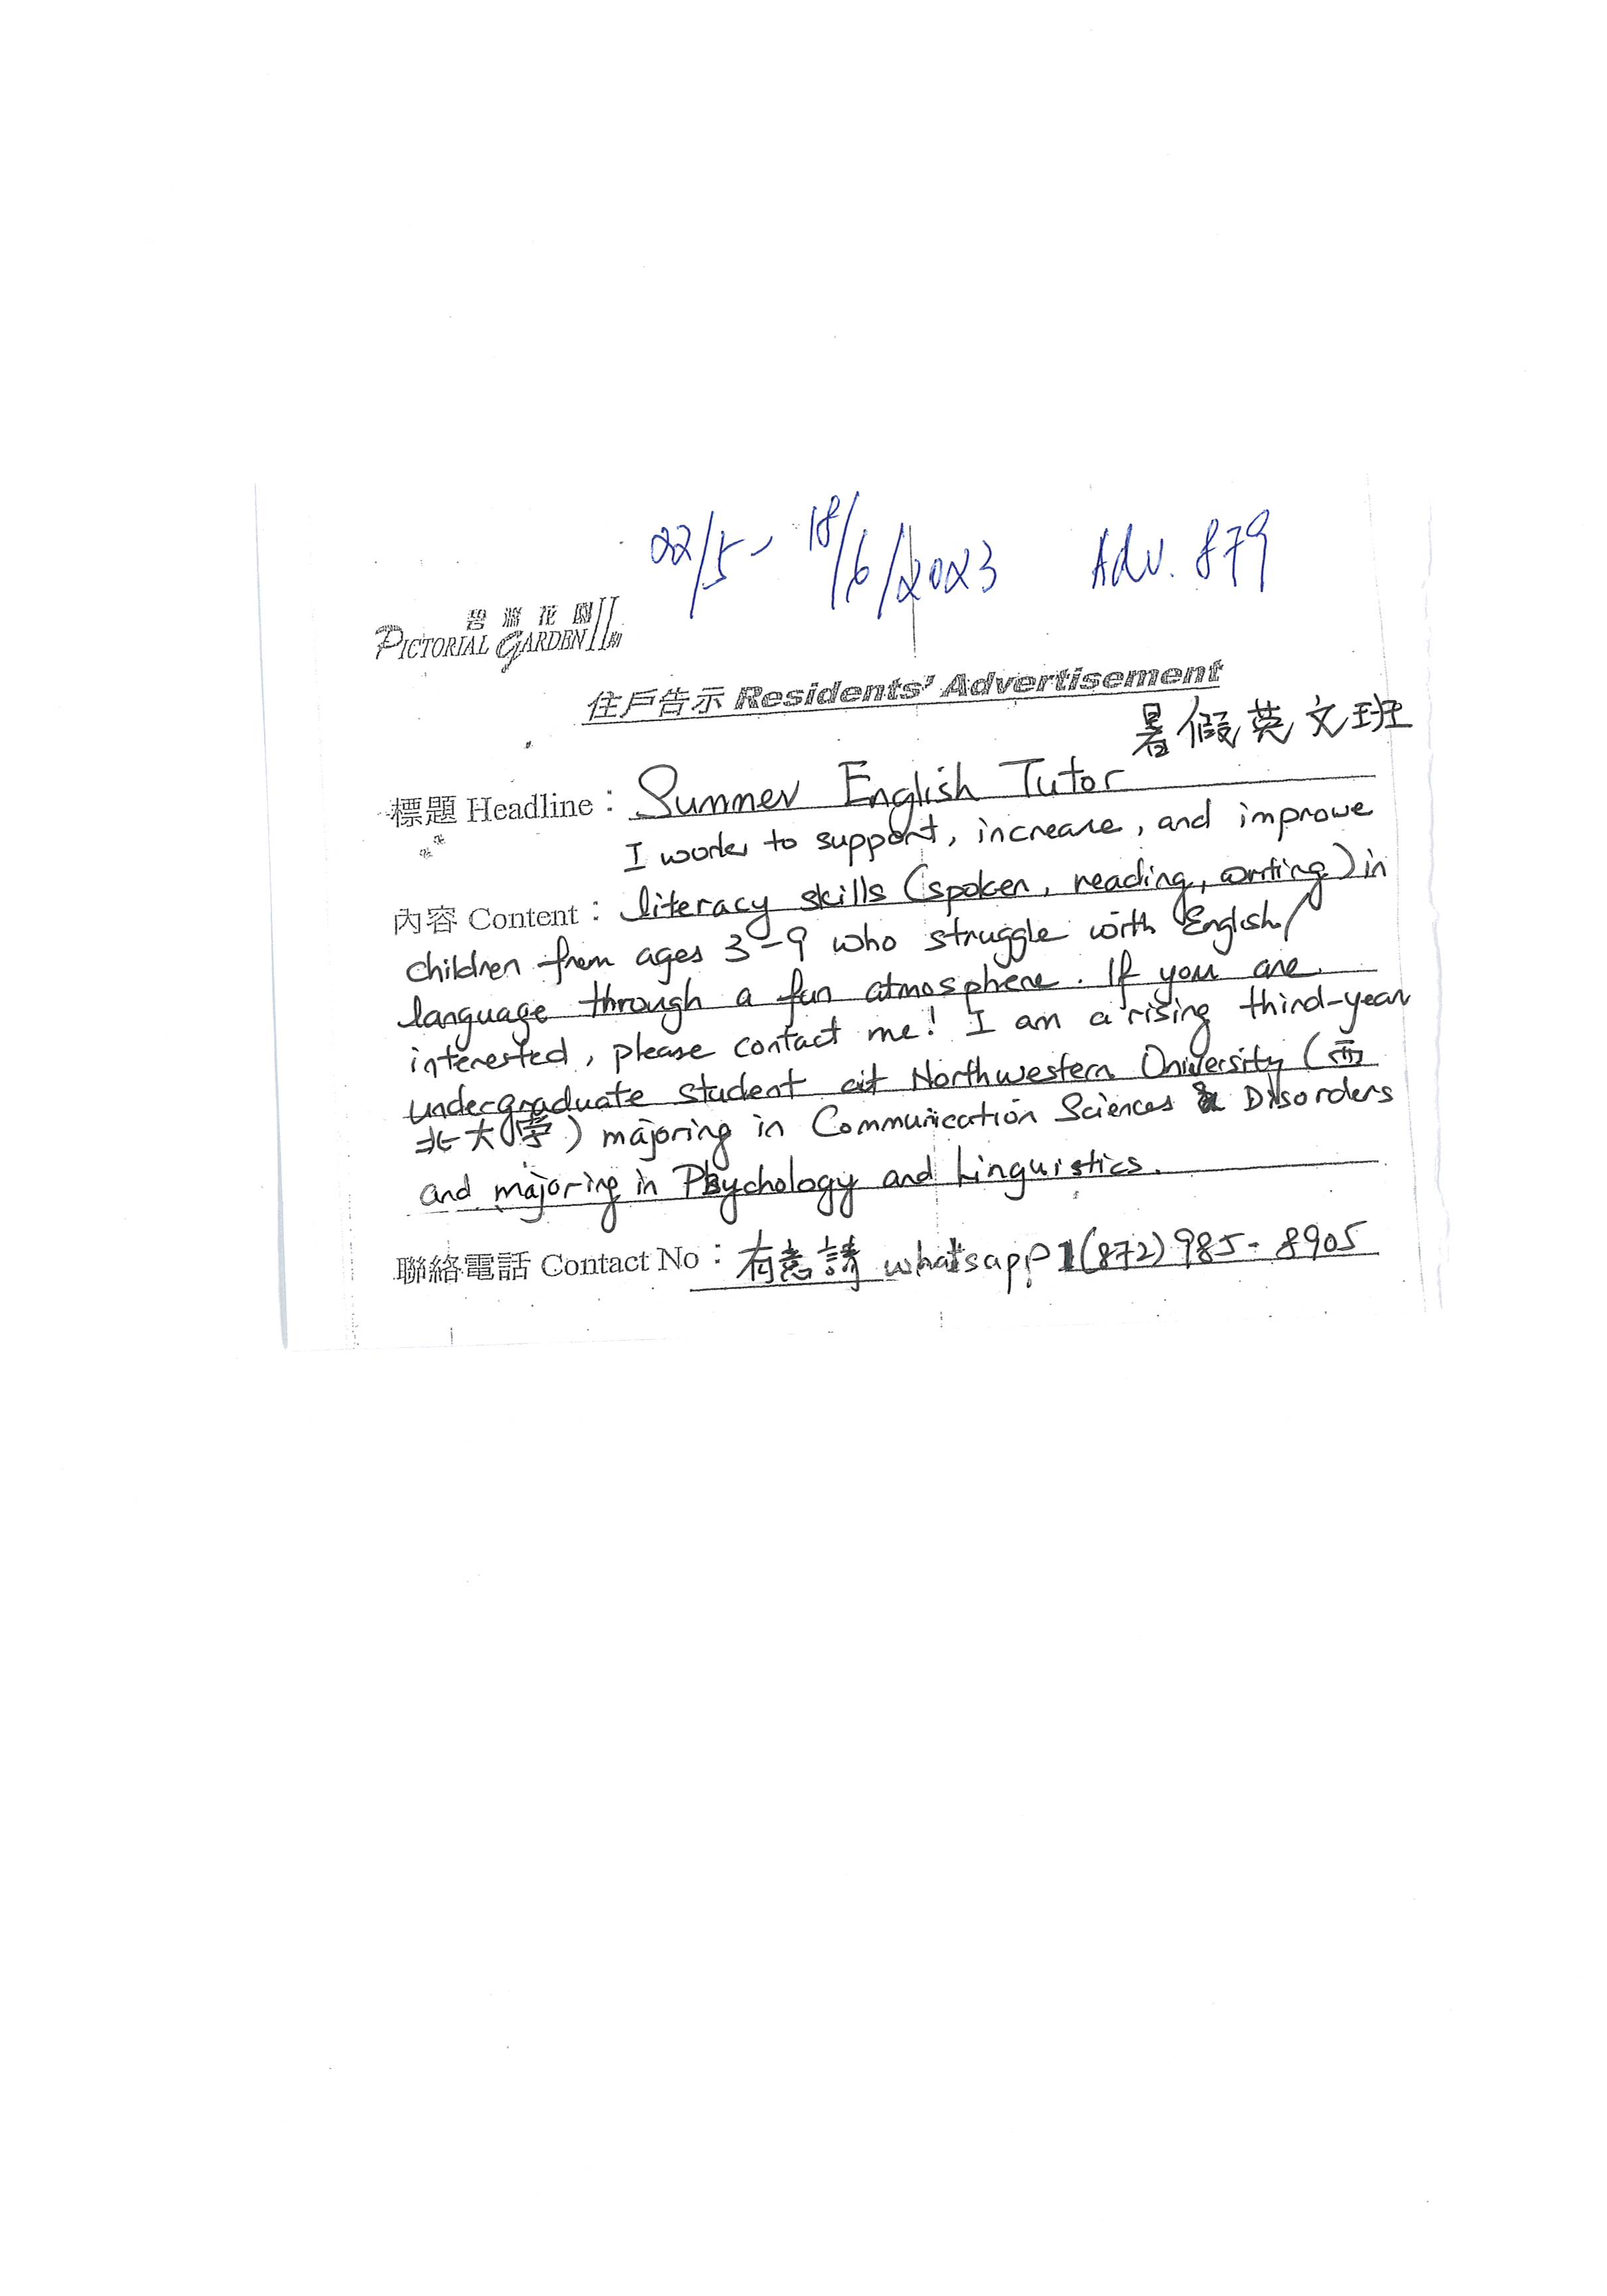 22/5 - 18/6/2023 Adv. 879
碧濤花園II期
PICTORIAL GARDEN II
住戶告示 Residents' Advertisement
暑假英文班
標題 Headline : Summer English Tutor
I works to support, increase, and improve
內容 Content : literacy skills (spoken, reading, writing) in
children from ages 3-9 who struggle with English
language through a fun atmosphere. If you are
interested, please contact me! I am a rising third-year
undergraduate student at Northwestern University (西
北大學) majoring in Communication Sciences & Disorders
and majoring in Psychology and Linguistics.
聯絡電話 Contact No : 有意請 whatsapp 1(872)985-8905